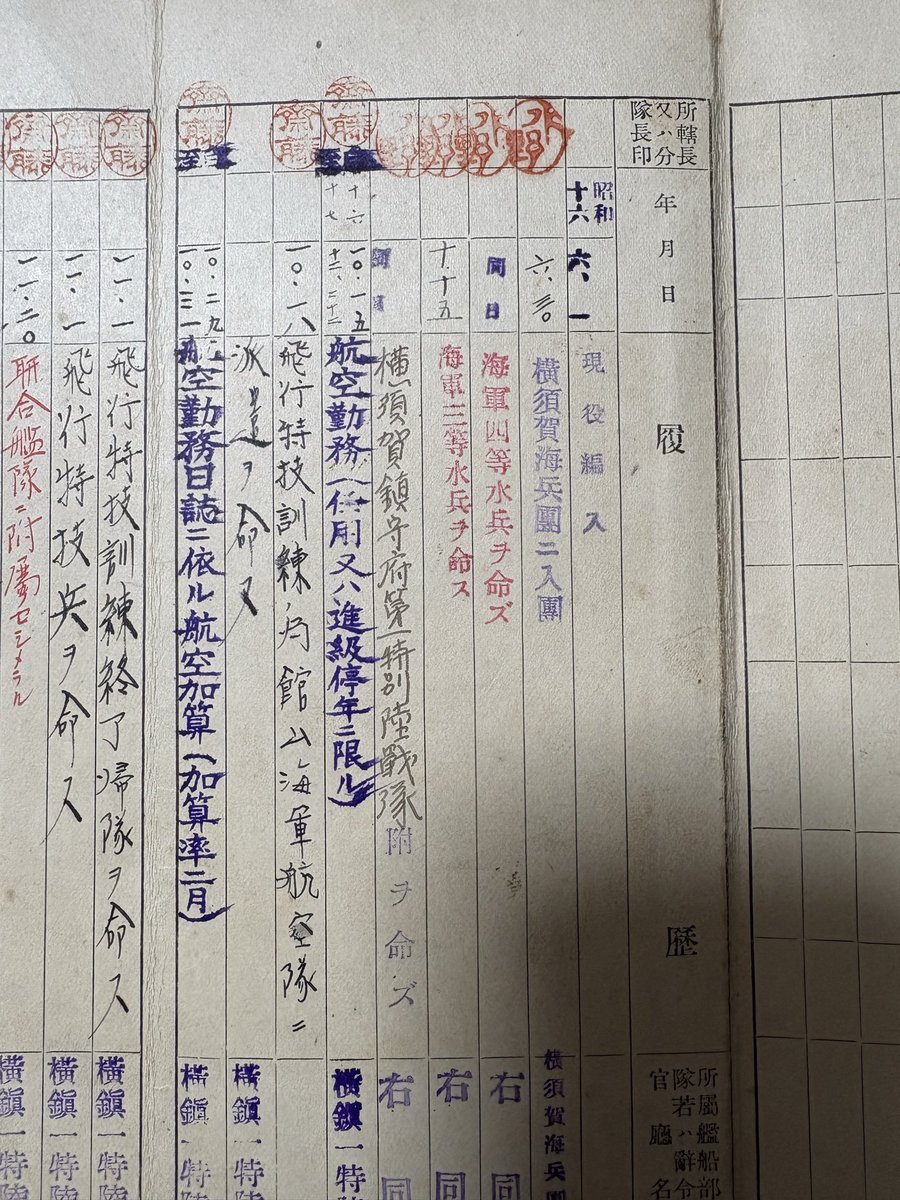 所轄長又ハ分隊長印
年月日
履歴
所屬艦船部隊若ハ辭令官廳名
昭和十六 六、一 現役編入
六、三〇 橫須賀海兵團ニ入團 橫須賀海兵團
同日 海軍四等水兵ヲ命ズ 右同
十、十五 海軍三等水兵ヲ命ス 右同
同日 橫須賀鎮守府第一特別陸戰隊附ヲ命ズ 右同
自至 十六 十七 一〇・一五 十二、三十一 航空勤務(任用又ハ進級停年ニ限ル) 橫鎭一特陸
一〇・一八 飛行特技訓練ノ爲館山海軍航空隊ニ
派遣ヲ命ス 橫鎭一特
自至 一〇・二九 一〇・三一 航空勤務日誌ニ依ル航空加算(加算率二月) 橫鎭一特
一一・一 飛行特技訓練終了歸隊ヲ命ス 橫鎭一特陸
一一・一 飛行特技兵ヲ命ス 橫鎭一特陸
一一・二〇 聯合艦隊ニ附屬セシメラル 橫鎭一特陸